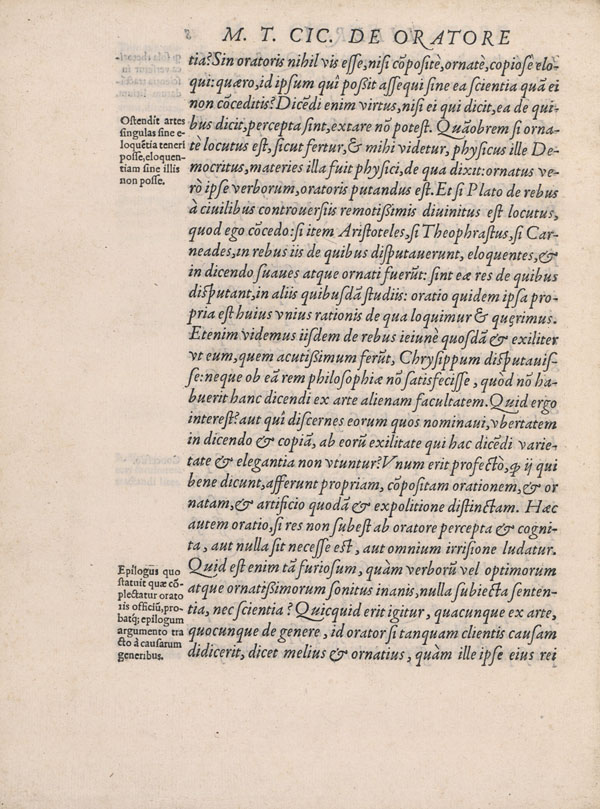 8
M. T. CIC. DE ORATORE
tia? Sin oratoris nihil vis esse, nisi cõpositè, ornatè, copiosè elo-
qui: quæro, id ipsum quî poßit assequi sine ea scientia quã ei
non cõceditis? Dicẽdi enim virtus, nisi ei qui dicit, ea de qui-
bus dicit, percepta sint, extare nõ potest. Quãobrem si orna-
tè locutus est, sicut fertur, & mihi videtur, physicus ille De-
mocritus, materies illa fuit physici, de qua dixit: ornatus ve-
rò ipse verborum, oratoris putandus est. Et si Plato de rebus
à ciuilibus controuersiis remotißimis diuinitus est locutus,
quod ego cõcedo: si item Aristoteles, si Theophrastus, si Car-
neades, in rebus iis de quibus disputauerunt, eloquentes, &
in dicendo suaues atque ornati fuerũt: sint eæ res de quibus
disputant, in aliis quibusdã studiis: oratio quidem ipsa pro-
pria est huius vnius rationis de qua loquimur & quęrimus.
Etenim videmus iisdem de rebus ieiunè quosdã & exiliter
vt eum, quem acutißimum ferũt, Chrysippum disputauis-
se: neque ob eã rem philosophiæ nõ satisfecisse, quòd nõ ha-
buerit hanc dicendi ex arte alienam facultatem. Quid ergo
interest? aut quî discernes eorum quos nominaui, vbertatem
in dicendo & copiã, ab eorũ exilitate qui hac dicẽdi varie-
tate & elegantia non vtuntur? Vnum erit profectò, ꝙ ij qui
bene dicunt, afferunt propriam, cõpositam orationem, & or
natam, & artificio quodã & expolitione distinctam. Hæc
autem oratio, si res non subest ab oratore percepta & cogni-
ta, aut nulla sit necesse est, aut omnium irrisione ludatur.
Quid est enim tã furiosum, quàm verborũ vel optimorum
atque ornatißimorum sonitus inanis, nulla subiecta senten-
tia, nec scientia? Quicquid erit igitur, quacunque ex arte,
quocunque de genere, id orator si tanquam clientis causam
didicerit, dicet melius & ornatius, quàm ille ipse eius rei
Ostendit artes
singulas sine e-
loquẽtia teneri
posse, eloquen-
tiam sine illis
non posse.
Epilogus quo
statuit quæ cõ-
plectatur orato
ris officiũ, pro-
batq; epilogum
argumento tra
cto à causarum
generibus.